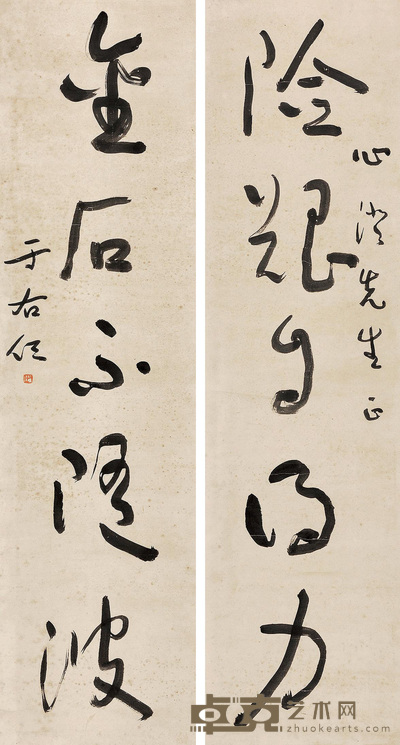 險艱自得力
心澄先生正
金石不隨波
于右任
卓克艺术网
zhuokearts.com